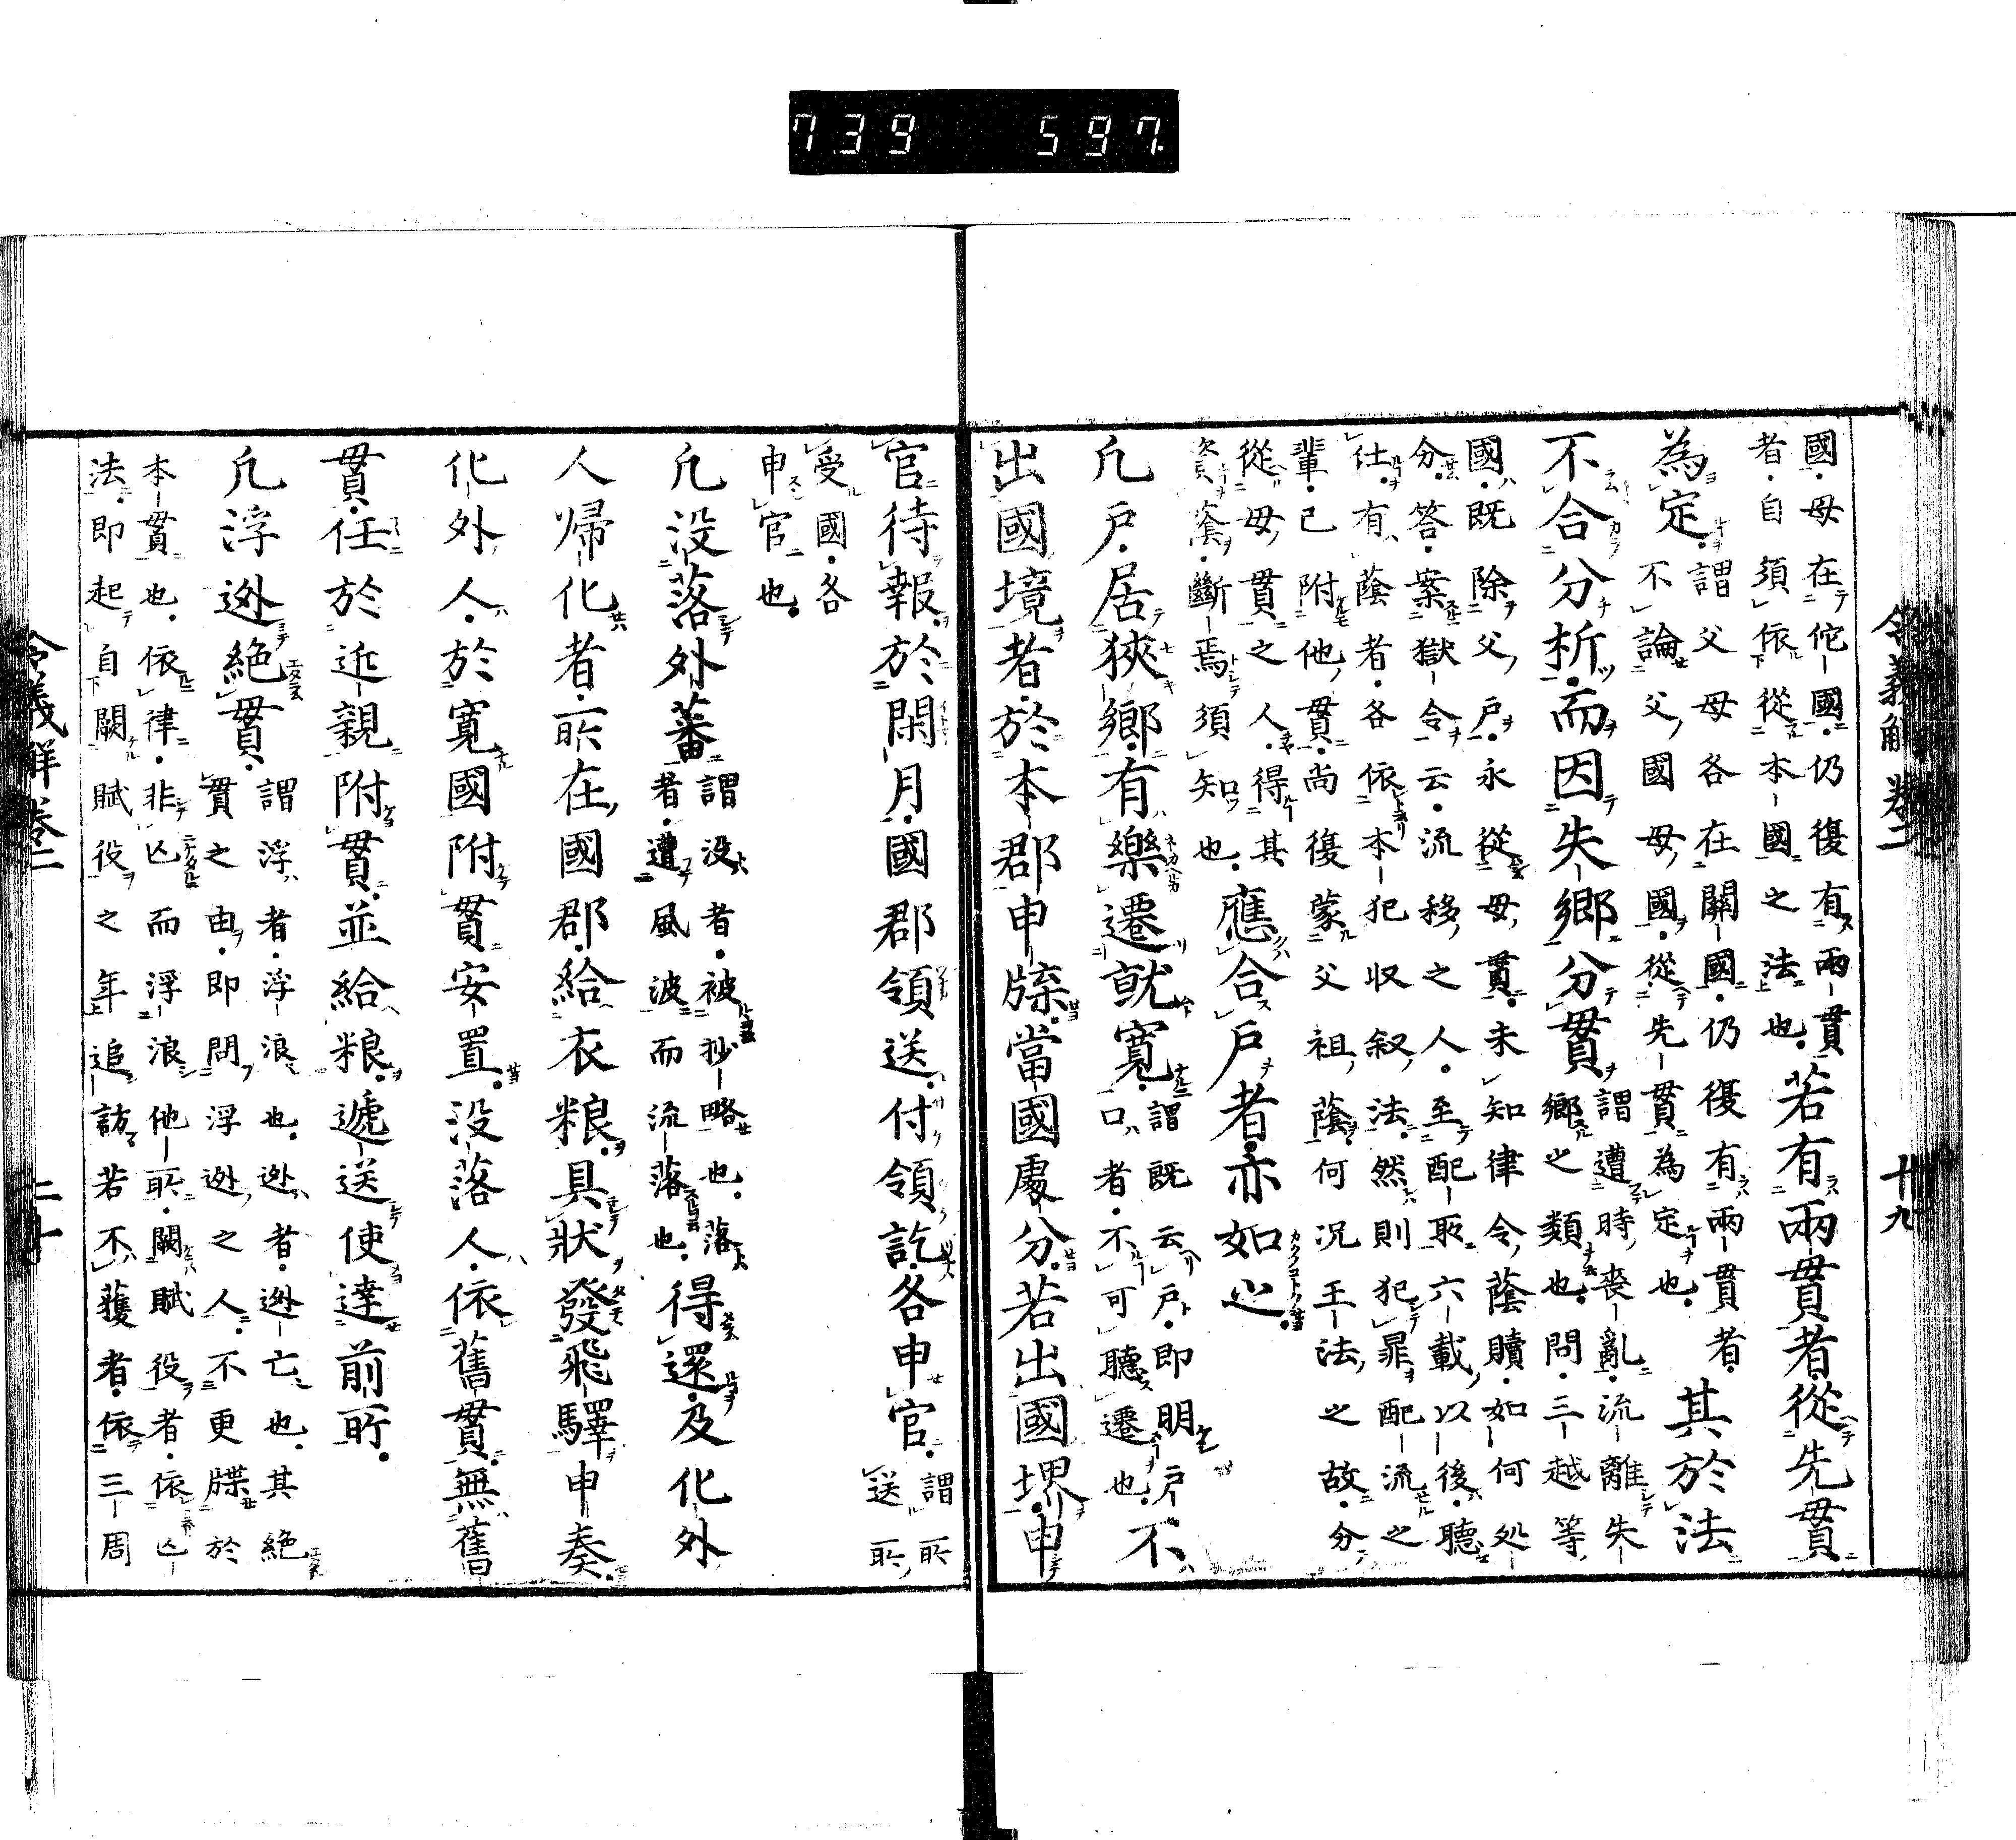 739 597.
令義解 卷二 十九
國母在佗國仍復有兩貫
者自須依從本國之法也
若有兩貫者從先貫
為定
謂父母各在關國仍復有兩貫者
不論父國母國從先貫為定也
其於法
不合分析而因失鄉分貫
謂遭時喪亂流離失
鄉之類也問三越等
國既除父戶永從母貫未知律令蔭贖如何処
分答案獄令云流移之人至配所六載以後聽
仕有蔭者各依本犯収叙法然則犯辠配流之
輩已附他貫尚復蒙父祖蔭何況王法之故分
從母貫之人得其
資蔭斷焉須知也
應合戶者亦如之
凡戶居狹鄉有樂遷就寬
謂既云戶即明戶
口者不可聽遷也
不
出國境者於本郡申牒當國處分若出國堺申
官待報於閑月國郡領送付領訖各申官
謂所
送所
受國各
申官也
凡没落外蕃
謂没者被抄略也落
者遭風波而流落也
得還及化外
人帰化者所在國郡給衣粮具狀發飛驛申奏
化外人於寬國附貫安置没落人依舊貫無舊
貫任於近親附貫並給粮遞送使達前所
凡浮逃絕貫
謂浮者浮浪也逃者逃亡也其絕
貫之由即問浮逃之人不更牒於
本貫也依律非亡而浮浪他所闕賦役者依亡
法即起自闕賦役之年追訪若不獲者依三周
令義解 卷二 二十